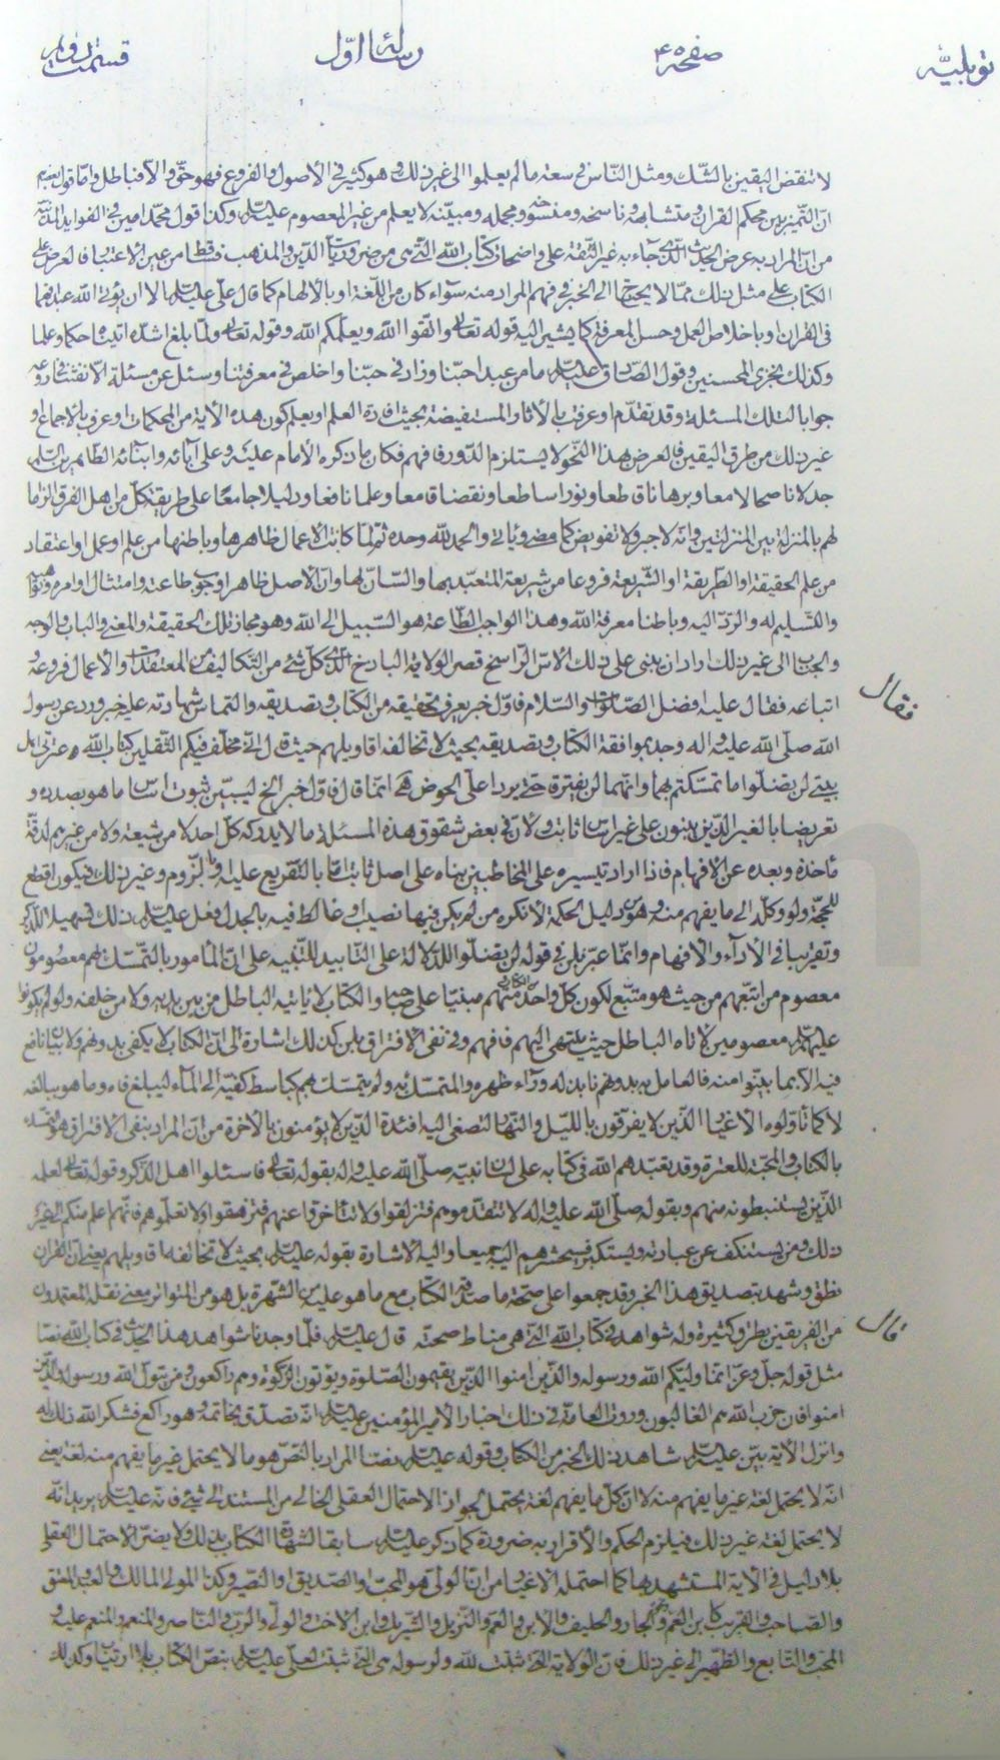 توبلیّه صفحه ۴۵ رسالهٔ اوّل قسمت دویم
لا تنقض الیقین بالشّك ومثل النّاس فی سعة ما لم یعلموا الی غیر ذلك وهو كثیر فی الأصول والفروع فهو حقّ والّا فباطل وامّا قول بعضهم
انّ التّمییز بین محكم القران ومتشابهه وناسخه ومنسوخه ومجمله ومبیّنه لا یعلم من غیر المعصوم علیه السّلم وكذا قول محمّد امین فی الفواید المدنیّة
من انّ المراد به عرض الحدیث الّذی جاء به غیر الثّقة علی واضحات كتاب الله الّتی هی من ضروریّات الدّین والمذهب فقط من عین الاعتبار فالعرض علی
الكتاب علی مثل ذلك ممّا لا یحتاج الی الخبر فی فهم المراد منه سوآء كان من اللّغة او بالالهام كما قال علیّ علیه السّلم الا ان یؤتی الله عبدا فهما
فی القران او باخلاص العمل وحسن المعرفة كما یشیر الیه قوله تعالی واتّقوا الله ویعلّمكم الله وقوله تعالی ولمّا بلغ اشدّه اتیناه حكما وعلما
وكذلك نجزی المحسنین وقول الصّادق علیه السّلم ما من عبد احبّنا وزاد فی حبّنا واخلص فی معرفتنا وسئل عن مسئلة الّا نفثنا فی روعه
جوابا لتلك المسئلة وقد تقدّم او عرف بالآثار المستفیضة بحیث افادة العلم او یعلم كون هذه الآیة من المحكمات او عرف بالاجماع او
غیر ذلك من طرق الیقین فالعرض بهذا النّحو لا یستلزم الدّور فافهم فكان ما ذكره الأمام علیه وعلی آبائه وابنائه الطّاهرین السّلم
جدلا ناصحا لامعا وبرهانا قاطعا ونورا ساطعا ونقضا قامعا وعلما نافعا ودلیلا جامعا علی طریقة كلّ من اهل الفرق الزاما
لهم بالمنزلة بین المنزلتین وانّه لا جبر ولا تفویض كما مضی ویاتی والحمد لله وحده ثمّ لمّا كانت الاعمال ظاهرها وباطنها من علم او عمل او اعتقاد
من علم الحقیقة او الطّریقة او الشّریعة فروعا من شریعة المتعبّد بها والسّانّ لها وانّ الاصل ظاهرا وجوب طاعته وامتثال اوامره ونواهیه
والتّسلیم له والردّ الیه وباطنا معرفة الله وهذا الواجب الطّاعة هو السّبیل الی الله وهو مجاز تلك الحقیقة والمعنی والباب والوجه
والجناب الی غیر ذلك اراد ان یبنی علی ذلك الاسّ الرّاسخ قصر الولایة الباذخ الّذی كلّ شئ من التّكالیف من المعتقدات والأعمال فروعه و
اتباعه فقال علیه افضل الصّلوات والسّلام فاوّل خبر یعرف تحقیقه من الكتاب وتصدیقه والتماس شهادته علیه خبر ورد عن رسول
الله صلّی الله علیه واله وجد بموافقة الكتاب وتصدیقه بحیث لا تخالفه اقاویلهم حیث قال انّی مخلّف فیكم الثّقلین كتاب الله وعترتی اهل
بیتی لن تضلّوا ما تمسّكتم بهما وانّهما لن یفترقا حتّی یردا علیّ الحوض انّما قال فاوّل خبر الخ لیبیّن ثبوت اساس ما هو بصدده و
تعریضا بالغیر الّذین یبنون علی غیر اساس ثابت ولانّ فی بعض شقوق هذه المسئلة ما لا یدركه كلّ احد لا من شیعته ولا من غیرهم لدقّة
مأخذه وبعده عن الافهام فاذا اراد تیسیره علی المخاطبین بناه علی اصل ثابت امّا بالتّفریع علیه او باللّزوم وغیر ذلك فیكون اقطع
للحجّة ولو وكله الی ما یفهم منه وهو دلیل الحكمة لأنكره من لم یكن فیها نصیب او غالط فیه بالجدل ففعل علیه السّلم ذلك تسهیلا للذّكر
وتقریبا فی الآرآء والافهام وانّما عبّر بلن فی قوله لن تضلّوا للدّلالة علی التّابید للتّنبیه علی انّ المأمور بالتّمسّك بهم معصومون
معصوم من اتّبعهم من حیث هو متّبع لكون كلّ واحد منهم مبنیّا علی صاحبه والكتاب لا یاتیه الباطل من بین یدیه ولا من خلفه ولو لم یكونوا
علیهم السّلم معصومین لأتاه الباطل حیث ینتهی الیهم فافهم وفی نفی الافتراق بلن كذلك اشارة الی انّ الكتاب لا یكفی بدونهم ولا بیان نافع
فیه الّا بما بیّنوا منه فالعامل به بدونهم نابذ له ورآء ظهره والمتمسّك به ولم یتمسّك بهم كباسط كفّیه الی المآء لیبلغ فاه وما هو ببالغه
لا كما تاوّلوه الاغیار الّذین لا یفرّقون باللّیل والنّهار لتصغی الیه افئدة الّذین لا یؤمنون بالآخرة من انّ المراد بنفی الافتراق هو
بالكتاب والمحبّة للعترة وقد تعبّدهم الله فی كتابه علی لسان نبیّه صلّی الله علیه واله بقوله تعالی فاسئلوا اهل الذّكر وقوله تعالی لعلمه
الّذین یستنبطونه منهم وبقوله صلّی الله علیه واله لا تتقدّموهم فتزلقوا ولا تتأخّروا عنهم فتزهقوا ولا تعلّموهم فانّهم اعلم منكم الی غیر
ذلك ومن یستنكف عن عبادته ویستكبر فسیحشرهم الیه جمیعا والیه الاشارة بقوله علیه السّلم بحیث لا تخالفه اقاویلهم یعنی انّ القران
نطق وشهد بتصدیق هذا الخبر وقد جمعوا علی صحّة ما صدّقه الكتاب مع ما هو علیه من الشّهرة بل هو من المتواتر معنی نقله المعتمدون
من الفریقین بطرق كثیرة وله شواهد فی كتاب الله الّتی هی مناط صحّته قال علیه السّلم فلمّا وجدنا شواهد هذا الحدیث فی كتاب الله نصّا
مثل قوله جلّ وعزّ انّما ولیّكم الله ورسوله والّذین امنوا الّذین یقیمون الصّلوة ویؤتون الزّكوة وهم راكعون ومن یتولّ الله ورسوله والّذین
امنوا فانّ حزب الله هم الغالبون وروت العامّة فی ذلك اخبارا لأمیر المؤمنین علیه السّلم انّه تصدّق بخاتمه وهو راكع فشكر الله ذلك له
وانزل الآیة بیّن علیه السّلم شاهد ذلك الخبر من الكتاب وقوله علیه السّلم نصّا المراد بالنّصّ هو ما لا یحتمل غیر ما یفهم منه لغة یعنی
انّه لا یحتمل لغة غیر ما یفهم منه لا انّ كلّ ما یفهم لغة یحتمل لجواز الاحتمال العقلی الخالی من المستند الی شئ فانّه علیه السّلم یرید انّه
لا یحتمل لغة غیر ذلك فیلزم الحكم والأقرار به ضرورة كما ذكر علیه السّلم سابقا لشهادة الكتاب بذلك ولا یضرّ الاحتمال العقلی
بلا دلیل فی الآیة المستشهد بها كما احتمله الاغیار من انّ الولیّ هو المحبّ او الصّدیق او النّصیر وكذا المولی المالك والعبد والمعتق
والصّاحب والقریب كابن العمّ ونحوه والجار والحلیف والابن والعمّ والنّزیل والشّریك وابن الاخت والولیّ والربّ والنّاصر والمنعم والمنعم علیه و
المحبّ والتّابع والظّهیر الی غیر ذلك فانّ الولایة الّتی ثبتت لله ولرسوله هی الّتی ثبتت لعلیّ علیه السّلم بنصّ الكتاب بلا ارتیاب وكذلك
فقال
قال